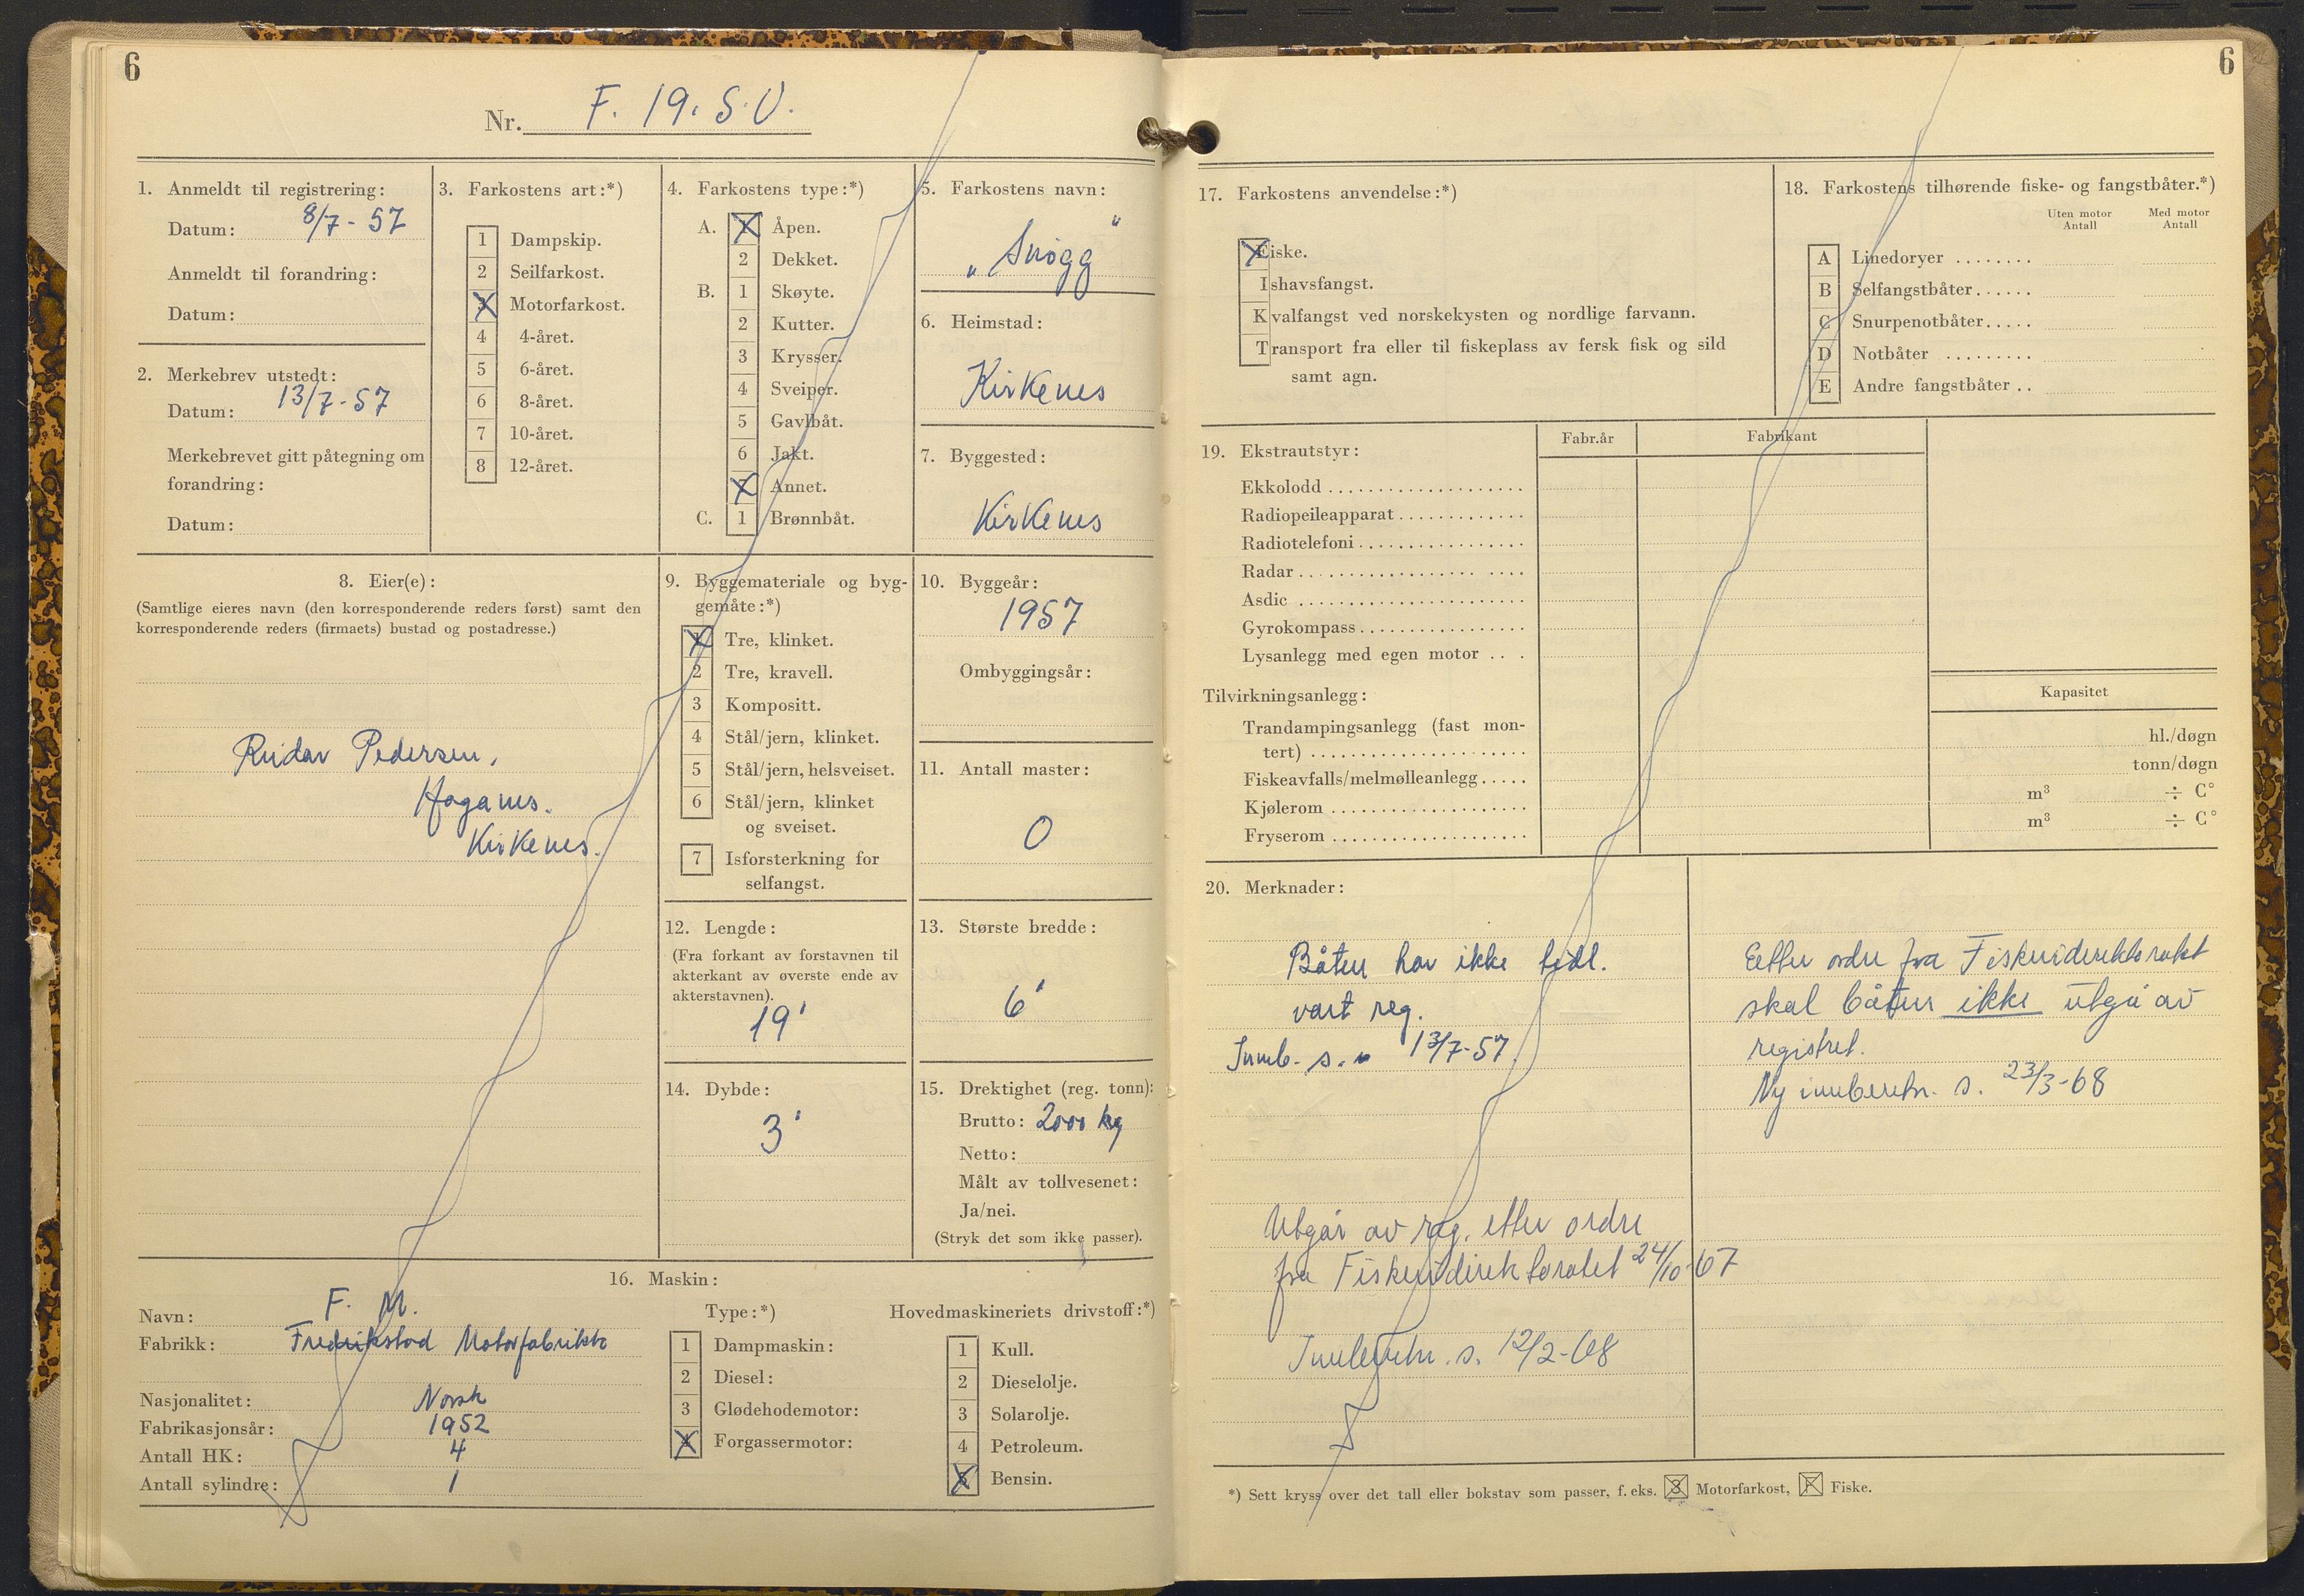 6
Nr. F. 19. S.V.
1. Anmeldt til registrering:
Datum: 8/7 - 57
Anmeldt til forandring:
Datum:
2. Merkebrev utstedt:
Datum: 13/7 - 57
Merkebrevet gitt påtegning om
forandring:
Datum:
3. Farkostens art:*)
1 Dampskip.
2 Seilfarkost.
3 Motorfarkost.
4 4-året.
5 6-året.
6 8-året.
7 10-året.
8 12-året.
4. Farkostens type:*)
A. 1 Åpen.
2 Dekket.
B. 1 Skøyte.
2 Kutter.
3 Krysser.
4 Sveiper.
5 Gavlbåt.
6 Jakt.
7 Annet.
C. 1 Brønnbåt.
5. Farkostens navn:
„ Snøgg “
6. Heimstad:
Kirkenes
7. Byggested:
Kirkenes
8. Eier(e):
(Samtlige eieres navn (den korresponderende reders først) samt den
korresponderende reders (firmaets) bustad og postadresse.)
Reidar Pedersen,
Haganes.
Kirkenes.
9. Byggemateriale og byg-
gemåte:*)
1 Tre, klinket.
2 Tre, kravell.
3 Kompositt.
4 Stål/jern, klinket.
5 Stål/jern, helsveiset.
6 Stål/jern, klinket
og sveiset.
7 Isforsterkning for
selfangst.
10. Byggeår:
1957
Ombyggingsår:
11. Antall master:
0
12. Lengde:
(Fra forkant av forstavnen til
akterkant av øverste ende av
akterstavnen).
19'
13. Største bredde:
6'
14. Dybde:
3'
15. Drektighet (reg. tonn):
Brutto: 2000 kg
Netto:
Målt av tollvesenet:
Ja/nei.
(Stryk det som ikke passer).
16. Maskin:
Navn: F. M.
Fabrikk: Fredrikstad Motorfabrikk
Nasjonalitet: Norsk
Fabrikasjonsår: 1952
Antall HK: 4
Antall sylindre: 1
Type:*)
1 Dampmaskin:
2 Diesel:
3 Glødehodemotor:
4 Forgassermotor:
Hovedmaskineriets drivstoff:*)
1 Kull.
2 Dieselolje.
3 Solarolje.
4 Petroleum.
5 Bensin.
6
17. Farkostens anvendelse:*)
Fiske.
Ishavsfangst.
Kvalfangst ved norskekysten og nordlige farvann.
Transport fra eller til fiskeplass av fersk fisk og sild
samt agn.
18. Farkostens tilhørende fiske- og fangstbåter.*)
Uten motor Med motor
Antall Antall
A Linedoryer ........
B Selfangstbåter......
C Snurpenotbåter.....
D Notbåter .........
E Andre fangstbåter ..
19. Ekstrautstyr:
Fabr.år Fabrikant
Ekkolodd
Radiopeileapparat
Radiotelefoni
Radar
Asdic
Gyrokompass
Lysanlegg med egen motor
Tilvirkningsanlegg:
Kapasitet
Trandampingsanlegg (fast mon-
tert) hl./døgn
Fiskeavfalls/melmølleanlegg..... tonn/døgn
Kjølerom m³ ÷ C°
Fryserom m³ ÷ C°
20. Merknader:
Båten har ikke tidl.
vært reg.
Innb. s. 13/7-57.
Utgår av reg. etter ordre
fra Fiskeridirektoratet 24/10-67
Innberetn. s. 12/2-68
Eetter ordre fra Fiskeridirektoratet
skal båten ikke utgå av
registret.
Ny innberetn. s. 23/3-68
*) Sett kryss over det tall eller bokstav som passer, f. eks. 3 Motorfarkost, F Fiske.